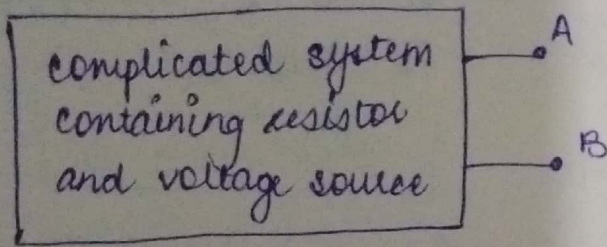 complicated system A
containing resistor
and voltage source B